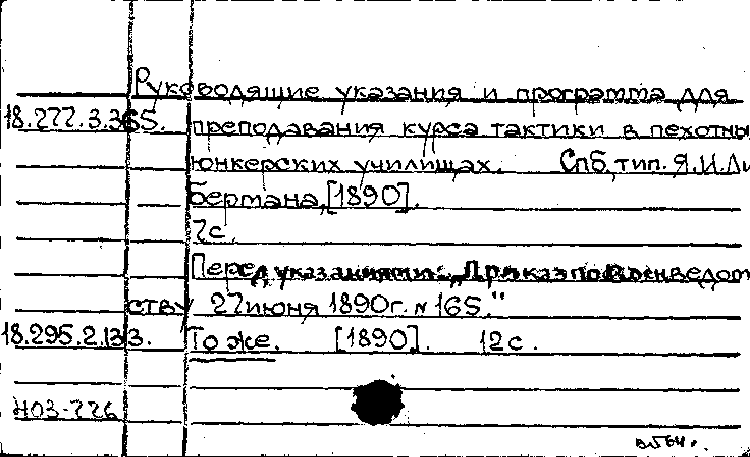 Руководящие указания и программа для
18.277.3.365. преподавания курса тактики в пехотны
юнкерских училищах. Спб, тип. Я.И.Ли
бермана, [1890].
7с.
Перед указаниями: „Приказ по Воен. ведом
ству 27 июня 1890 г. № 165."
18.295.2.133. То же. [1890]. 12 с.
Н03-226